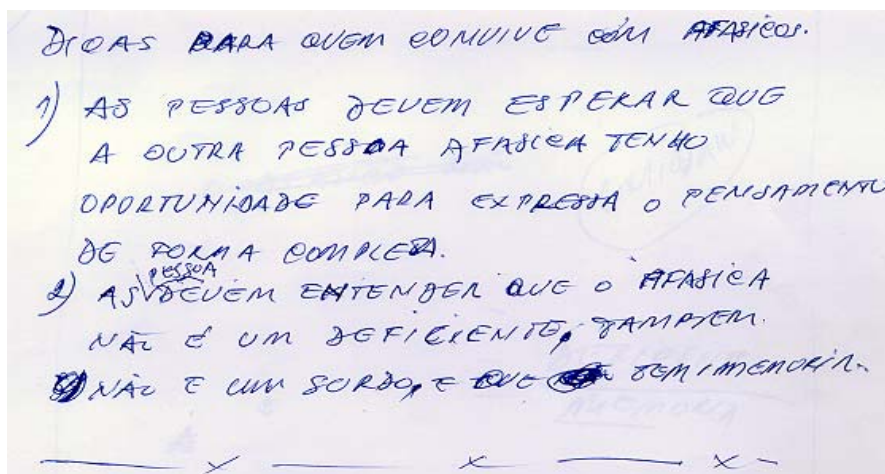 DICAS PARA QUEM CONVIVE COM AFASICOS.
1) AS PESSOAS DEVEM ESPERAR QUE
A OUTRA PESSOA AFASICA TENHO
OPORTUNIDADE PARA EXPRESSA O PENSAMENTO
DE FORMA COMPLETA.
PESSOA
2) AS DEVEM ENTENDER QUE O AFASICA
NÃO É UM DEFICIENTE, TAMPEM.
NÃO E UM SURDO, E QUE TEM MEMORIA.